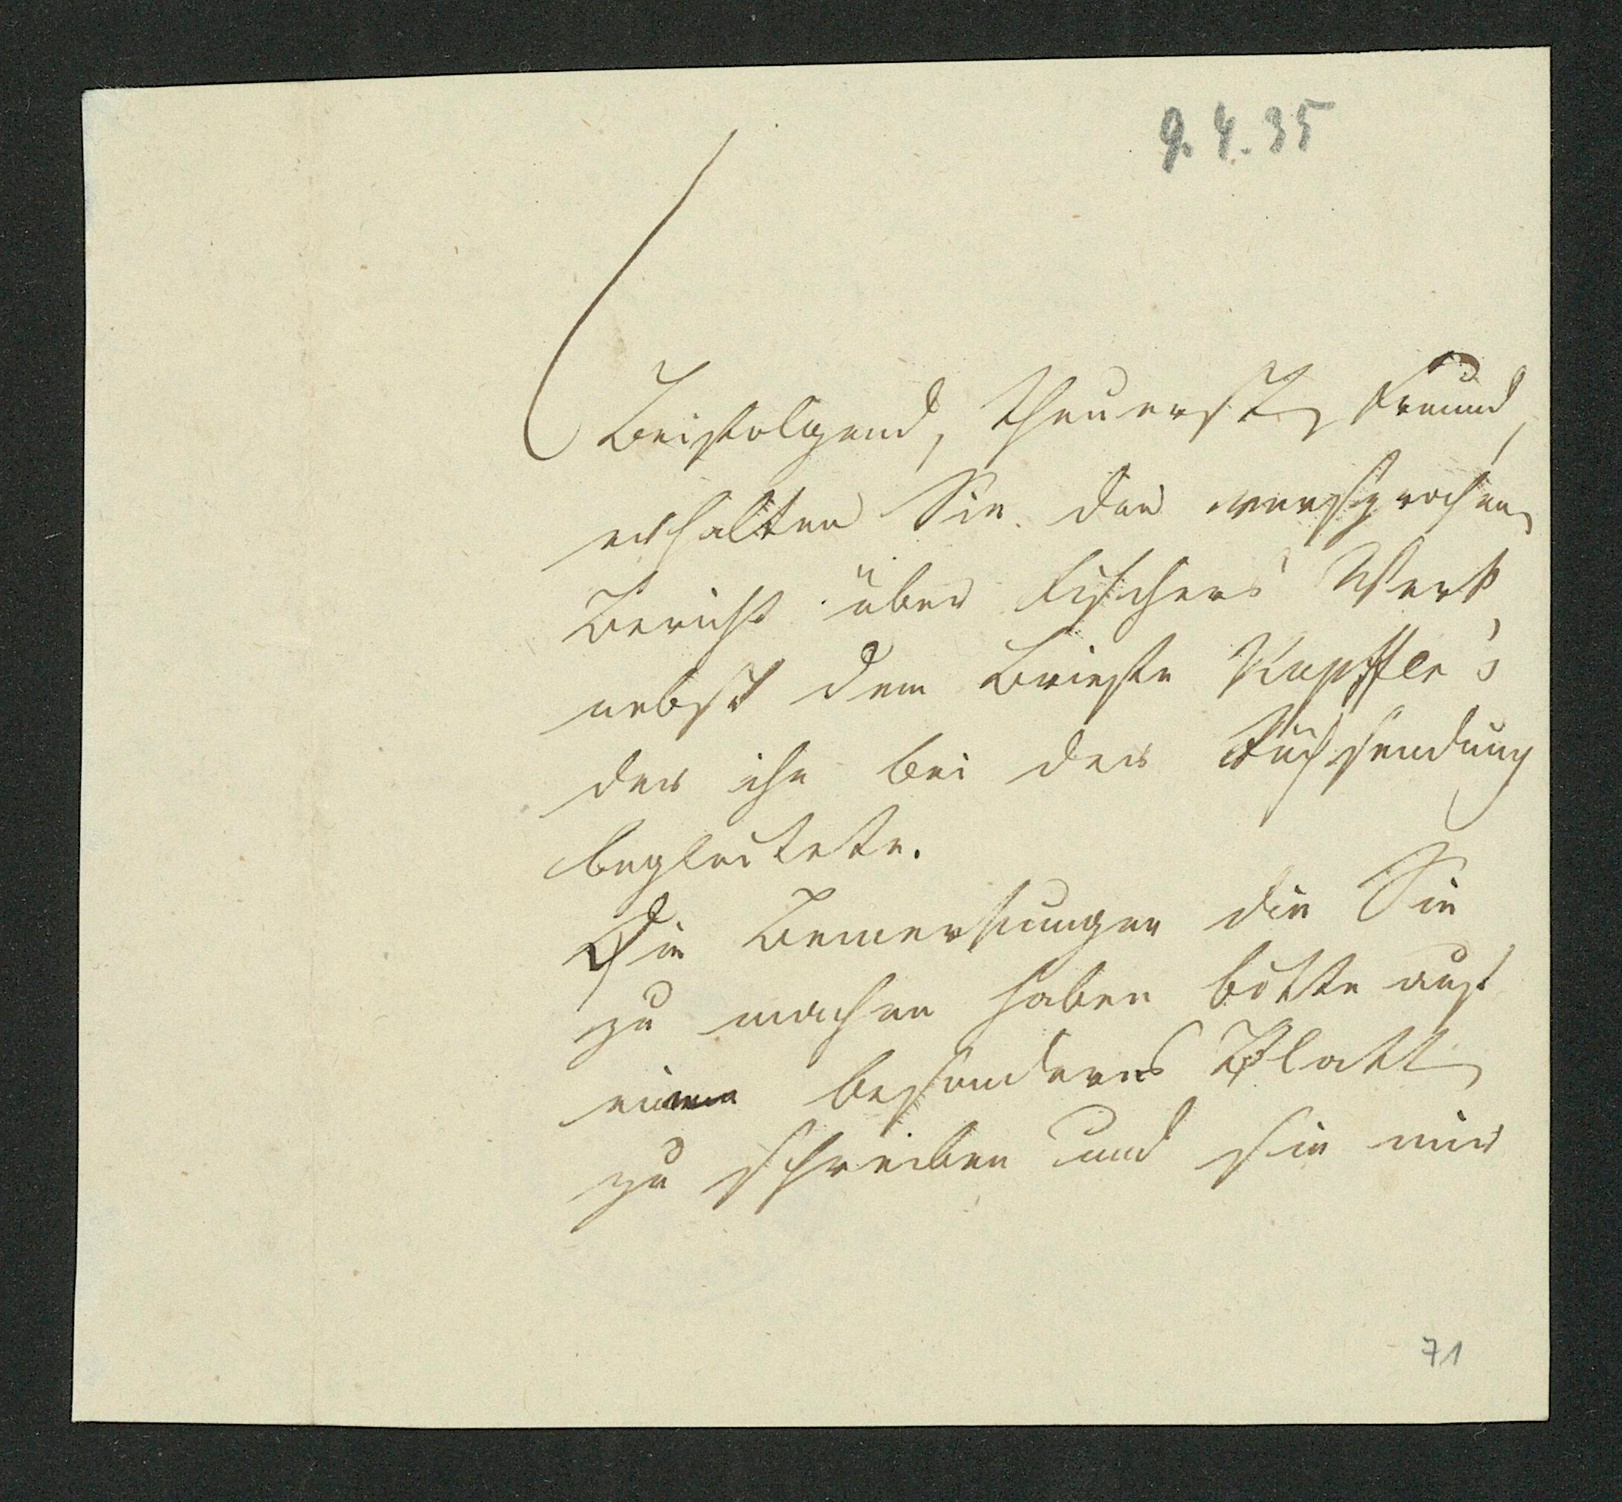 9.4.35
Beifolgend, theuerster Freund,
erhalten Sie den versprochenen
Bericht über Fischers Werk,
nebst dem Briefe Kupffer's
der ihn bei der Rücksendung
begleitete.
Die Bemerkungen die Sie
zu machen haben bitte auf
einem besonderes Blatt
zu schreiben und sie mir
71